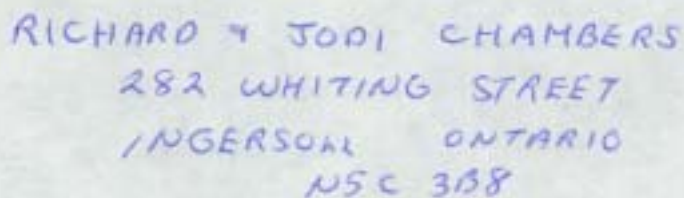 RICHARD & JODI CHAMBERS
282 WHITING STREET
INGERSOLL ONTARIO
N5C 3B8